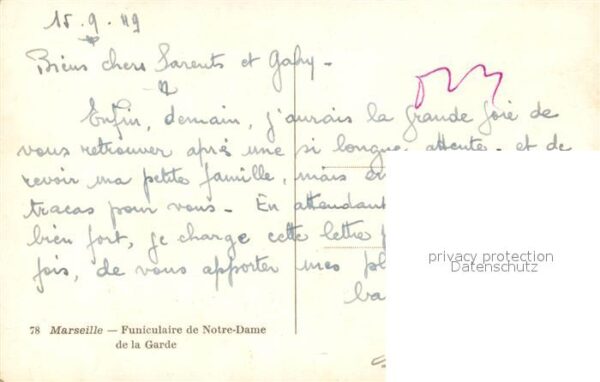 15.9.49
Biens chers Parents et Gaby -
Enfin, demain, j'aurais la grande joie de
vous retrouver après une si longue attente - et de
revoir ma petite famille, mais
tracas pour vous - En attendant
bien fort, je charge cette lettre
fois, de vous apporter mes
privacy protection
Datenschutz
78 Marseille — Funiculaire de Notre-Dame
de la Garde